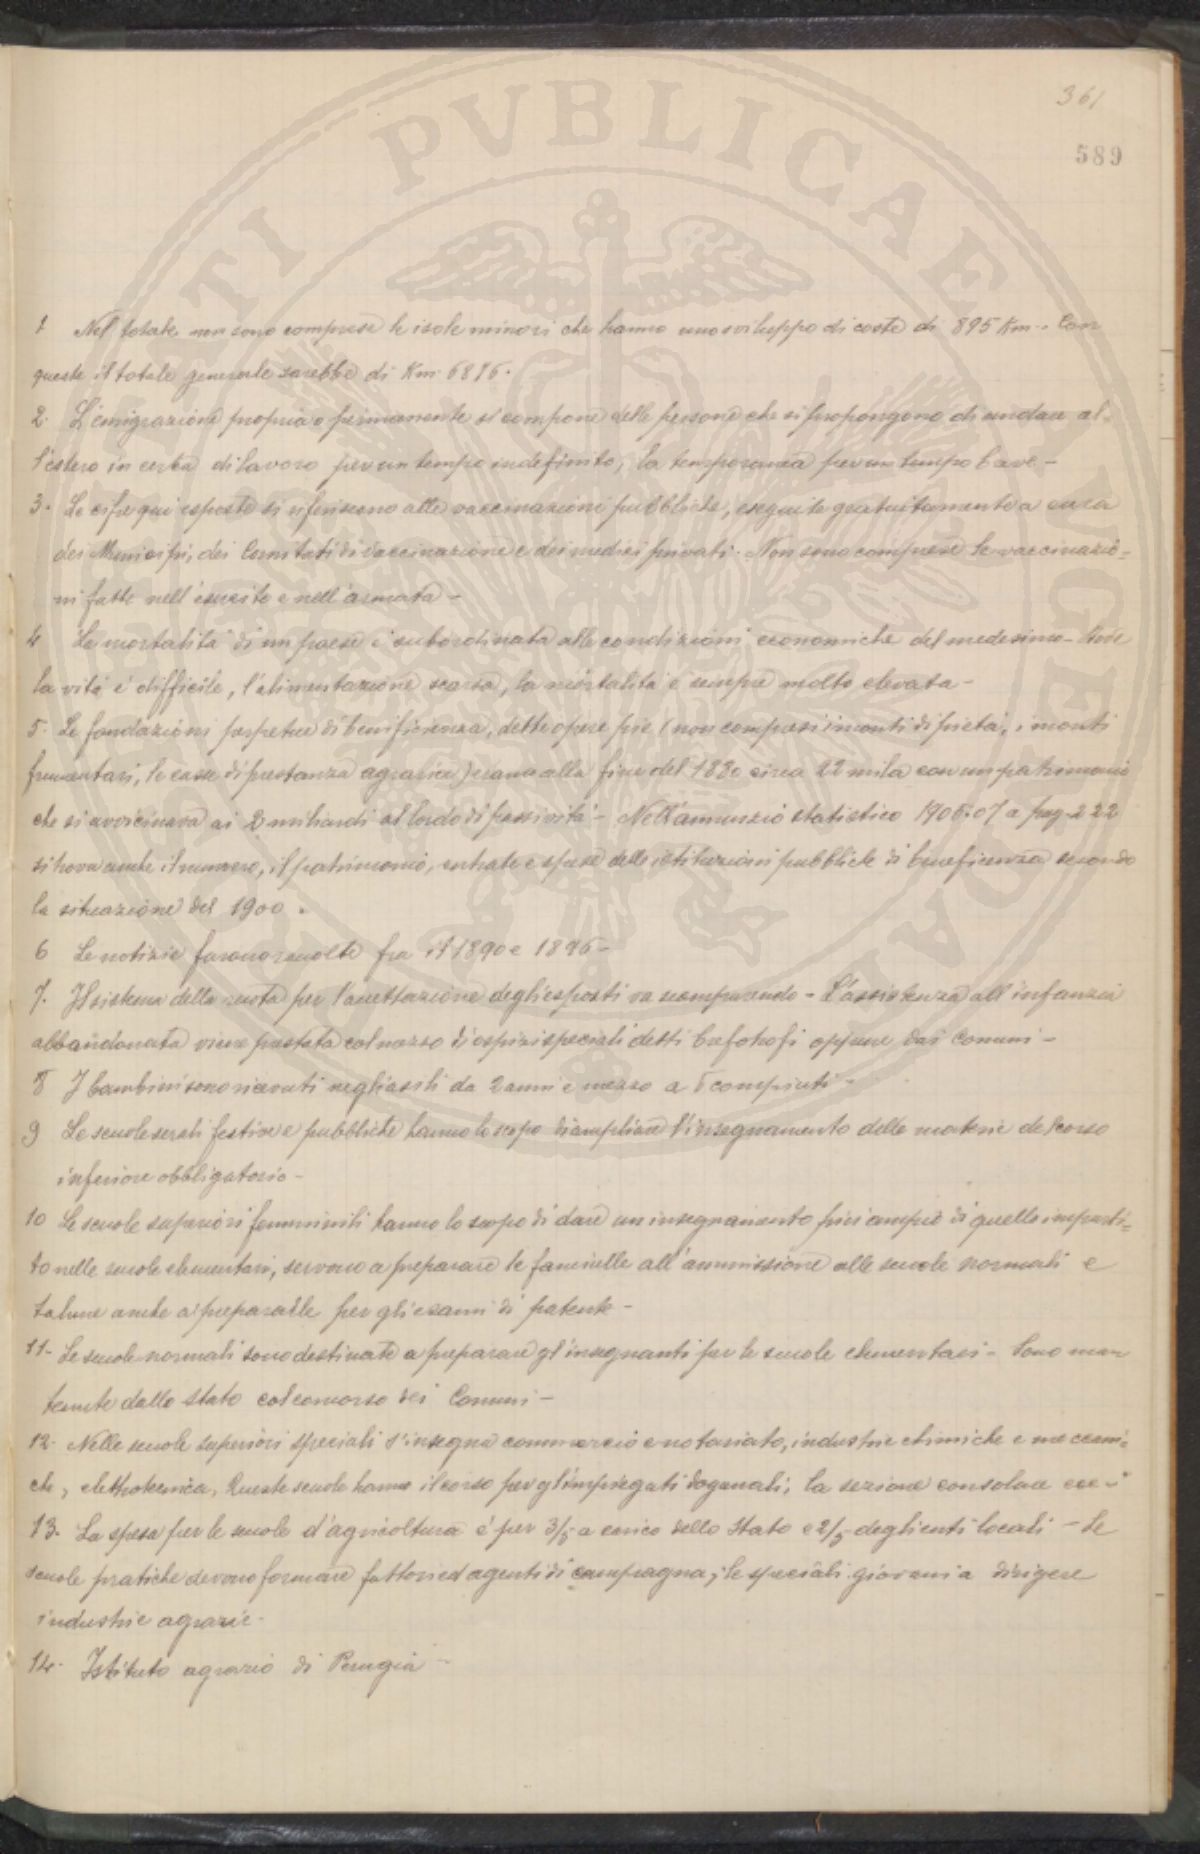 361
589
1 Nel totale non sono comprese le isole minori che hanno uno sviluppo di coste di 895 Km.. Con
queste il totale generale sarebbe di Km. 6816.
2. L'emigrazione propria o permanente si compone delle persone che si propongono di andare al-
l'estero in cerca di lavoro per un tempo indefinito, la temporanea per un tempo breve -
3. Le cifre qui esposte si riferiscono alle vaccinazioni pubbliche, eseguite gratuitamente a cura
dei Municipi, dei Comitati di vaccinazione e dei medici privati. Non sono comprese le vaccinazio-
ni fatte nell'esercito e nell'armata -
4 La mortalità di un paese è subordinata alle condizioni economiche del medesimo -
la vita è difficile, l'alimentazione scarsa, la mortalità è sempre molto elevata -
5. Le fondazioni perpetue di beneficienza, dette opere pie (non compresi i monti di pietà, i monti
frumentari, le casse di prestanza agraria) erano alla fine del 1880 circa 22 mila con un patrimonio
che si avvicinava ai 2 miliardi al lordo di passività - Nell'annuario statistico 1905-07 a pag. 222
si trova anche il numero, il patrimonio, entrate e spese delle istituzioni pubbliche di beneficenza secondo
la situazione del 1900.
6 Le notizie furono raccolte fra il 1890 e 1896 -
7. Il sistema della ruota per l'accettazione degli esposti va scomparendo - L'assistenza all'infanzia
abbandonata viene prestata col mezzo di ospizi speciali detti brefotrofi oppure dai Comuni -
8 I bambini sono ricevuti negli asili da 2 anni e mezzo a 6 compiuti -
9 Le scuole serali festive e pubbliche hanno lo scopo di ampliare l'insegnamento delle materie del corso
inferiore obbligatorio -
10 Le scuole superiori femminili hanno lo scopo di dare un insegnamento più ampio di quello imparti-
to nelle scuole elementari, servono a preparare le fanciulle all'ammissione alle scuole normali e
talune anche a prepararle per gli esami di patente -
11 - Le scuole normali sono destinate a preparare gl'insegnanti per le scuole elementari - Sono man
tenute dallo Stato col concorso dei Comuni -
12. Nelle scuole superiori speciali s'insegna commercio e notariato, industrie chimiche e meccani-
che, elettrotecnica, Queste scuole hanno il corso per gl'impiegati doganali, la sezione consolare ecc -
13. La spesa per le scuole d'agricoltura è per 3/5 a carico dello Stato e 2/5 degli enti locali - Le
scuole pratiche devono formare fattori ed agenti di campagna, le speciali giovani a dirigere
industrie agrarie.
14. Istituto agrario di Perugia -
PVBLICAE